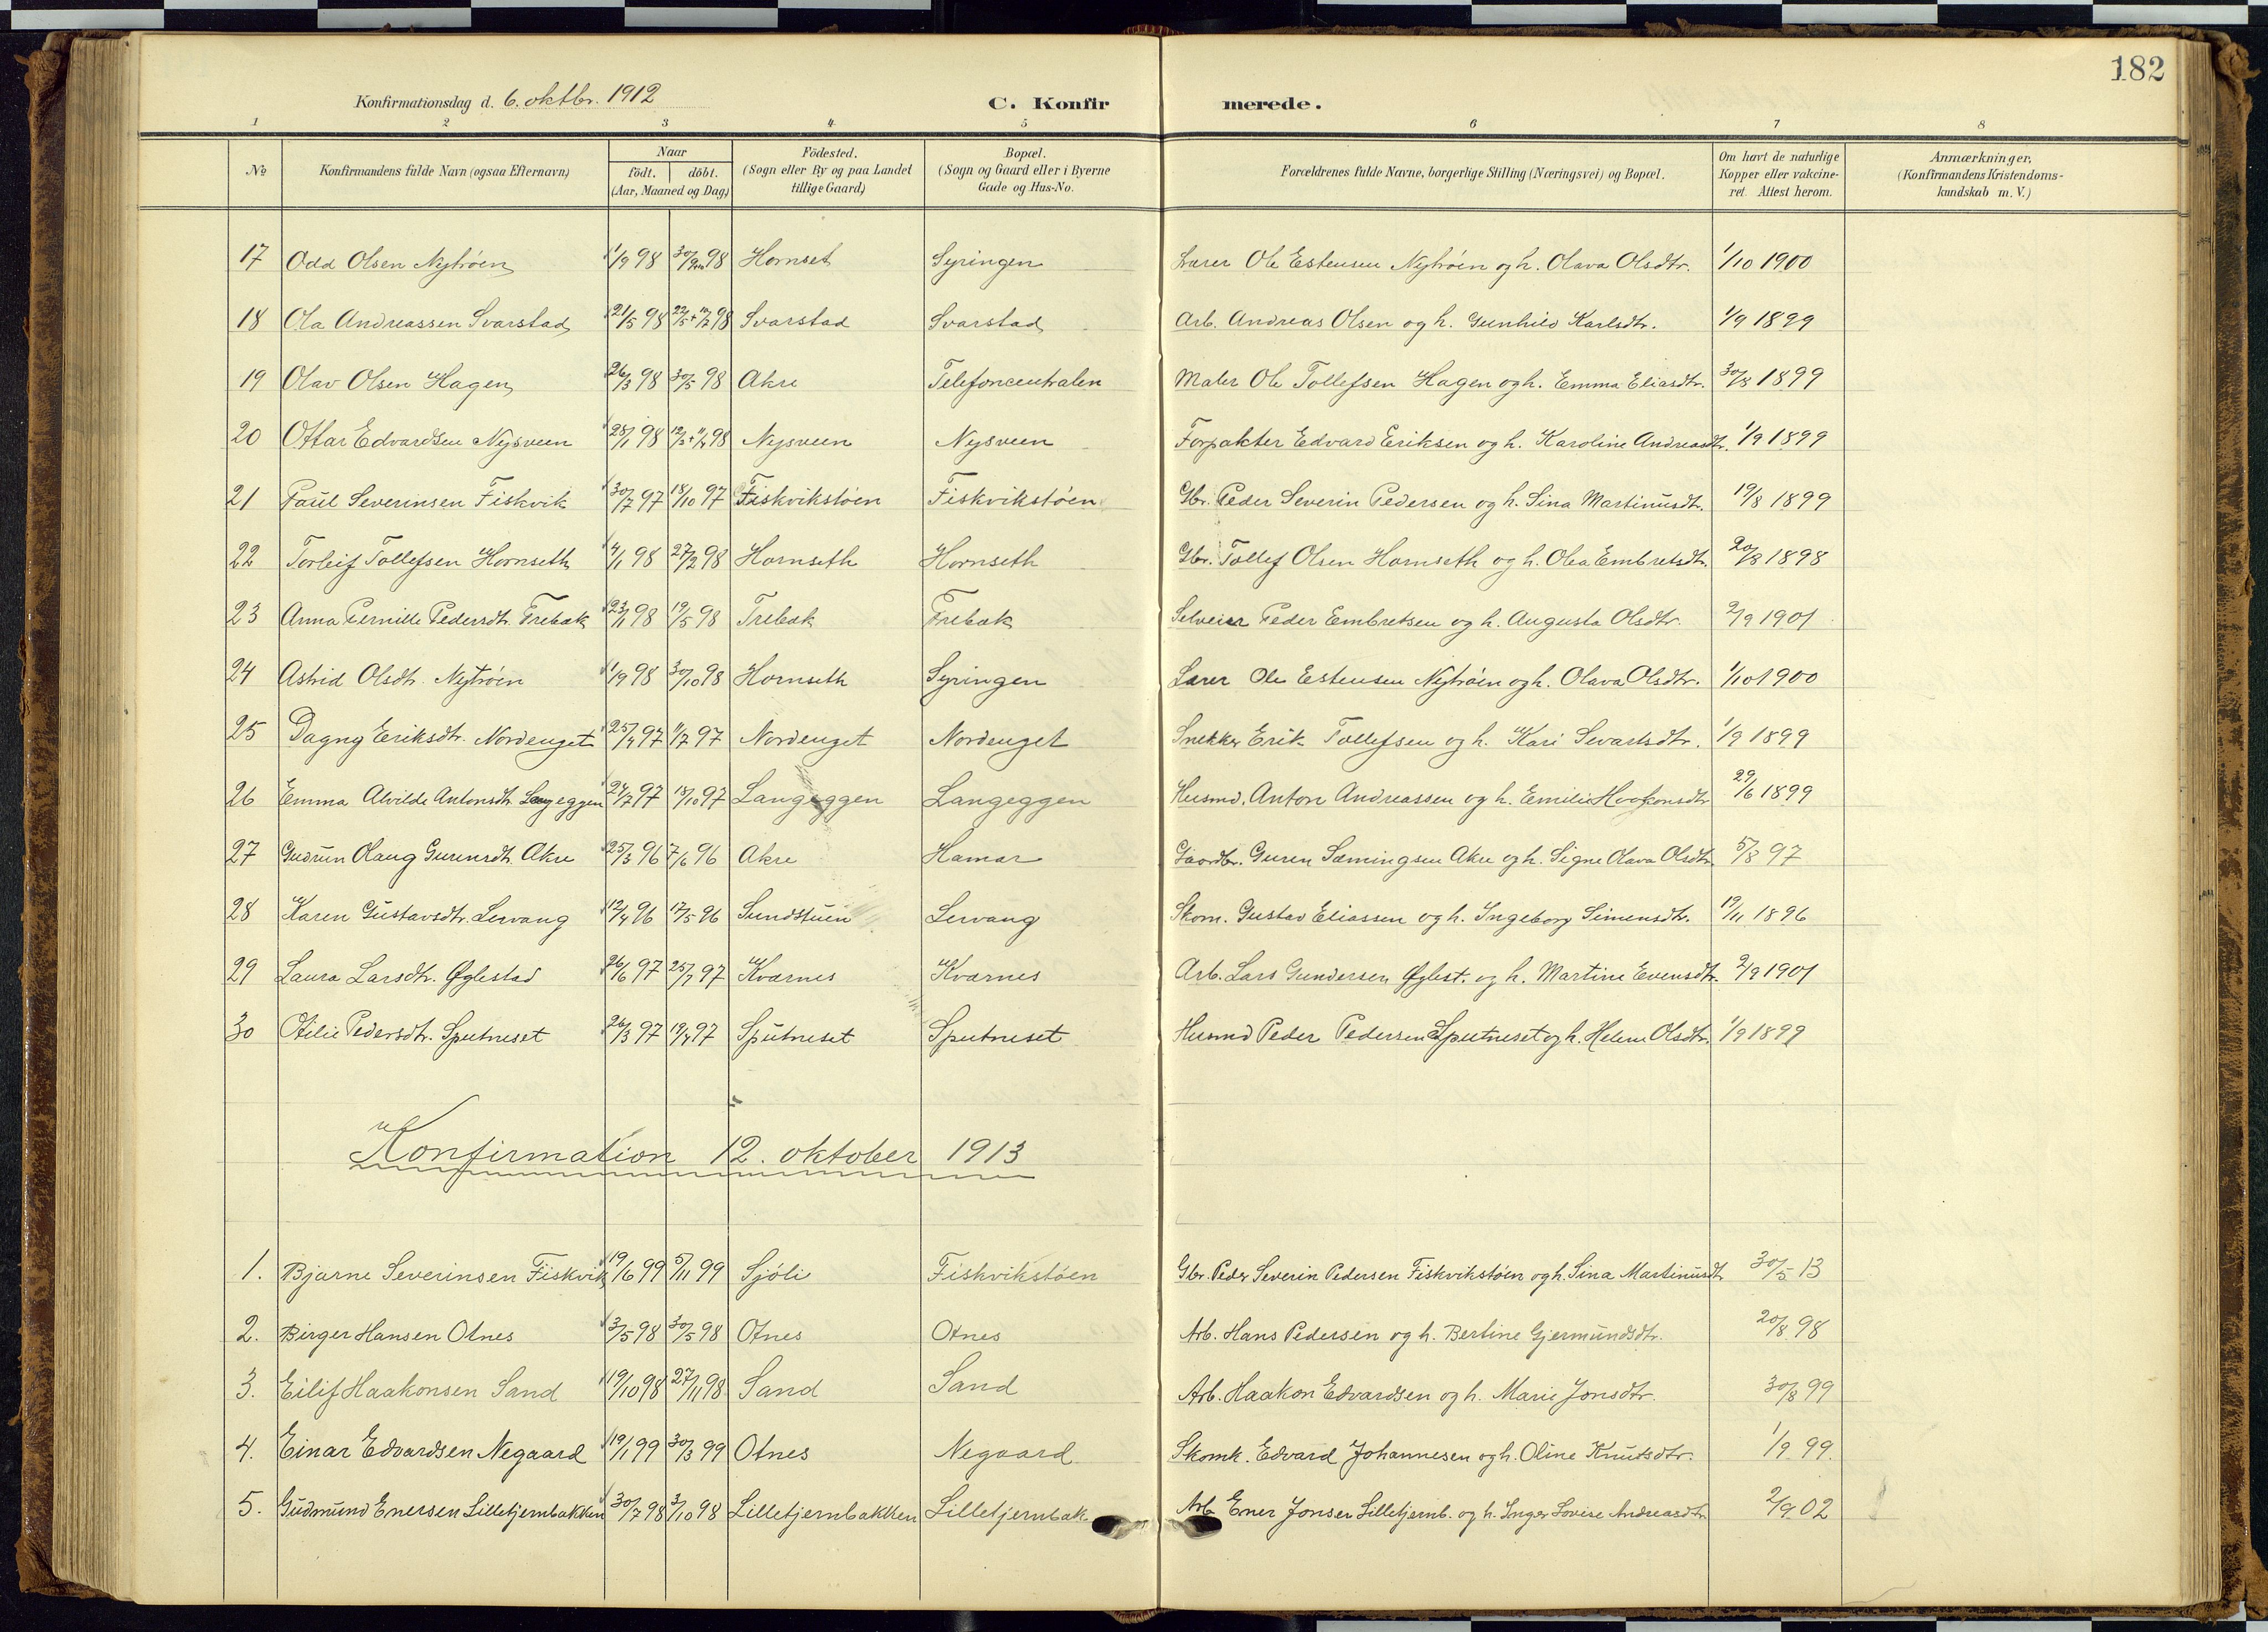 182
Konfirmationsdag d. 6. oktbr. 1912 C. Konfir merede.
1 2 3 4 5 6 7 8
No Konfirmandens fulde Navn (ogsaa Efternavn) Naar födt. döbt. (Aar, Maaned og Dag) Födested. (Sogn eller By og paa Landet tillige Gaard) Bopæl. (Sogn og Gaard eller i Byerne Gade og Hus-No. Forældrenes fulde Navne, borgerlige Stilling (Næringsvei) og Bopæl. Om havt de naturlige Kopper eller vakcineret. Attest herom. Anmærkninger. (Konfirmandens Kristendomskundskab m. V.)
17 Odd Olsen Nytröen 1/9 98 98 Hornset Syringen Lærer Ole Estensen Nytröen og h. Olava Olsdtr. 1/10 1900
18 Ola Andreassen Svarstad 21/5 98 98 Svarstad Svarstad Arb. Andreas Olsen og h. Gunhild Karlsdtr. 1/9 1899
19 Olav Olsen Hagen 26/3 98 30/5 98 Akre Telefoncentralen Maler Ole Tollefsen Hagen og h. Emma Eliasdtr. 30/8 1899
20 Ottar Edvardsen Nysveen 28/1 98 98 Nysveen Nysveen Forpakter Edvard Eriksen og h. Karoline Andreasdtr. 1/9 1899
21 Paul Severinsen Fiskvik 30/7 97 18/10 97 Fiskvikstöen Fiskvikstöen Gbr. Peder Severin Pedersen og h. Sina Martinusdtr. 19/8 1899
22 Torleif Tollefsen Hornseth 4/1 98 27/2 98 Hornseth Hornseth Gbr. Tollef Olsen Hornseth og h. Olea Embretsdtr. 20/8 1898
23 Anna Pernille Pedersdtr. Trebæk 23/1 98 19/5 98 Trebæk Trebæk Selveier Peder Embretsen og h. Augusta Olsdtr. 2/9 1901
24 Astrid Olsdtr. Nytröen 1/9 98 30/10 98 Hornseth Syringen Lærer Ole Estensen Nytröen og h. Olava Olsdtr. 1/10 1900
25 Dagny Eriksdtr. Nordenget 25/4 97 11/7 97 Nordenget Nordenget Snekker Erik Tollefsen og h. Kari Sevartsdtr. 1/9 1899
26 Emma Alvilde Antonsdtr. Langeggen 24/7 97 18/10 97 Langeggen Langeggen Husmd. Anton Andreassen og h. Emilie Haakonsdtr. 29/6 1899
27 Gudrun Olaug Gurensdtr. Akre 25/3 96 7/6 96 Akre Hamar Gaardbr. Guren Sæmingsen Akre og h. Signe Olava Olsdtr. 5/8 97
28 Karen Gustavsdtr. Lervang 12/4 96 17/5 96 Sundstuen Lervang Skom. Gustav Eliassen og h. Ingeborg Simensdtr. 19/11 1896
29 Laura Larsdtr. Øglestad 26/6 97 25/7 97 Kværnes Kværnes Arb. Lars Gundersen Øglest. og h. Martine Evensdtr. 2/9 1901
30 Otilie Pedersdtr. Sputneset 26/3 97 19/4 97 Sputneset Sputneset Husmd Peder Pedersen Sputneset og h. Helene Olsdtr. 1/9 1899
Konfirmation 12. oktober 1913
1. Bjarne Severinsen Fiskvik 19/6 99 5/11 99 Sjöli Fiskvikstöen Gbr. Peder Severin Pedersen Fiskvikstöen og h. Sina Martinusdtr 30/5 13
2. Birger Hansen Otnes 3/5 98 30/5 98 Otnes Otnes Arb. Hans Pedersen og h. Bertine Gjermundsdtr. 20/8 98
3. Eilif Haakonsen Sand 19/10 98 27/11 98 Sand Sand Arb. Haakon Edvardsen og h. Marie Jonsdtr. 30/8 99
4. Einar Edvardsen Negaard 19/1 99 30/3 99 Otnes Negaard Skomk. Edvard Johannesen og h. Oline Knutsdtr. 1/9 99.
5. Gudmund Enersen Lilletjernbakken 30/7 98 3/10 98 Lilletjernbakken Lilletjernbak. Arb Ener Jonsen Lilletjernb. og h. Inger Lovise Andreasdtr 2/9 02